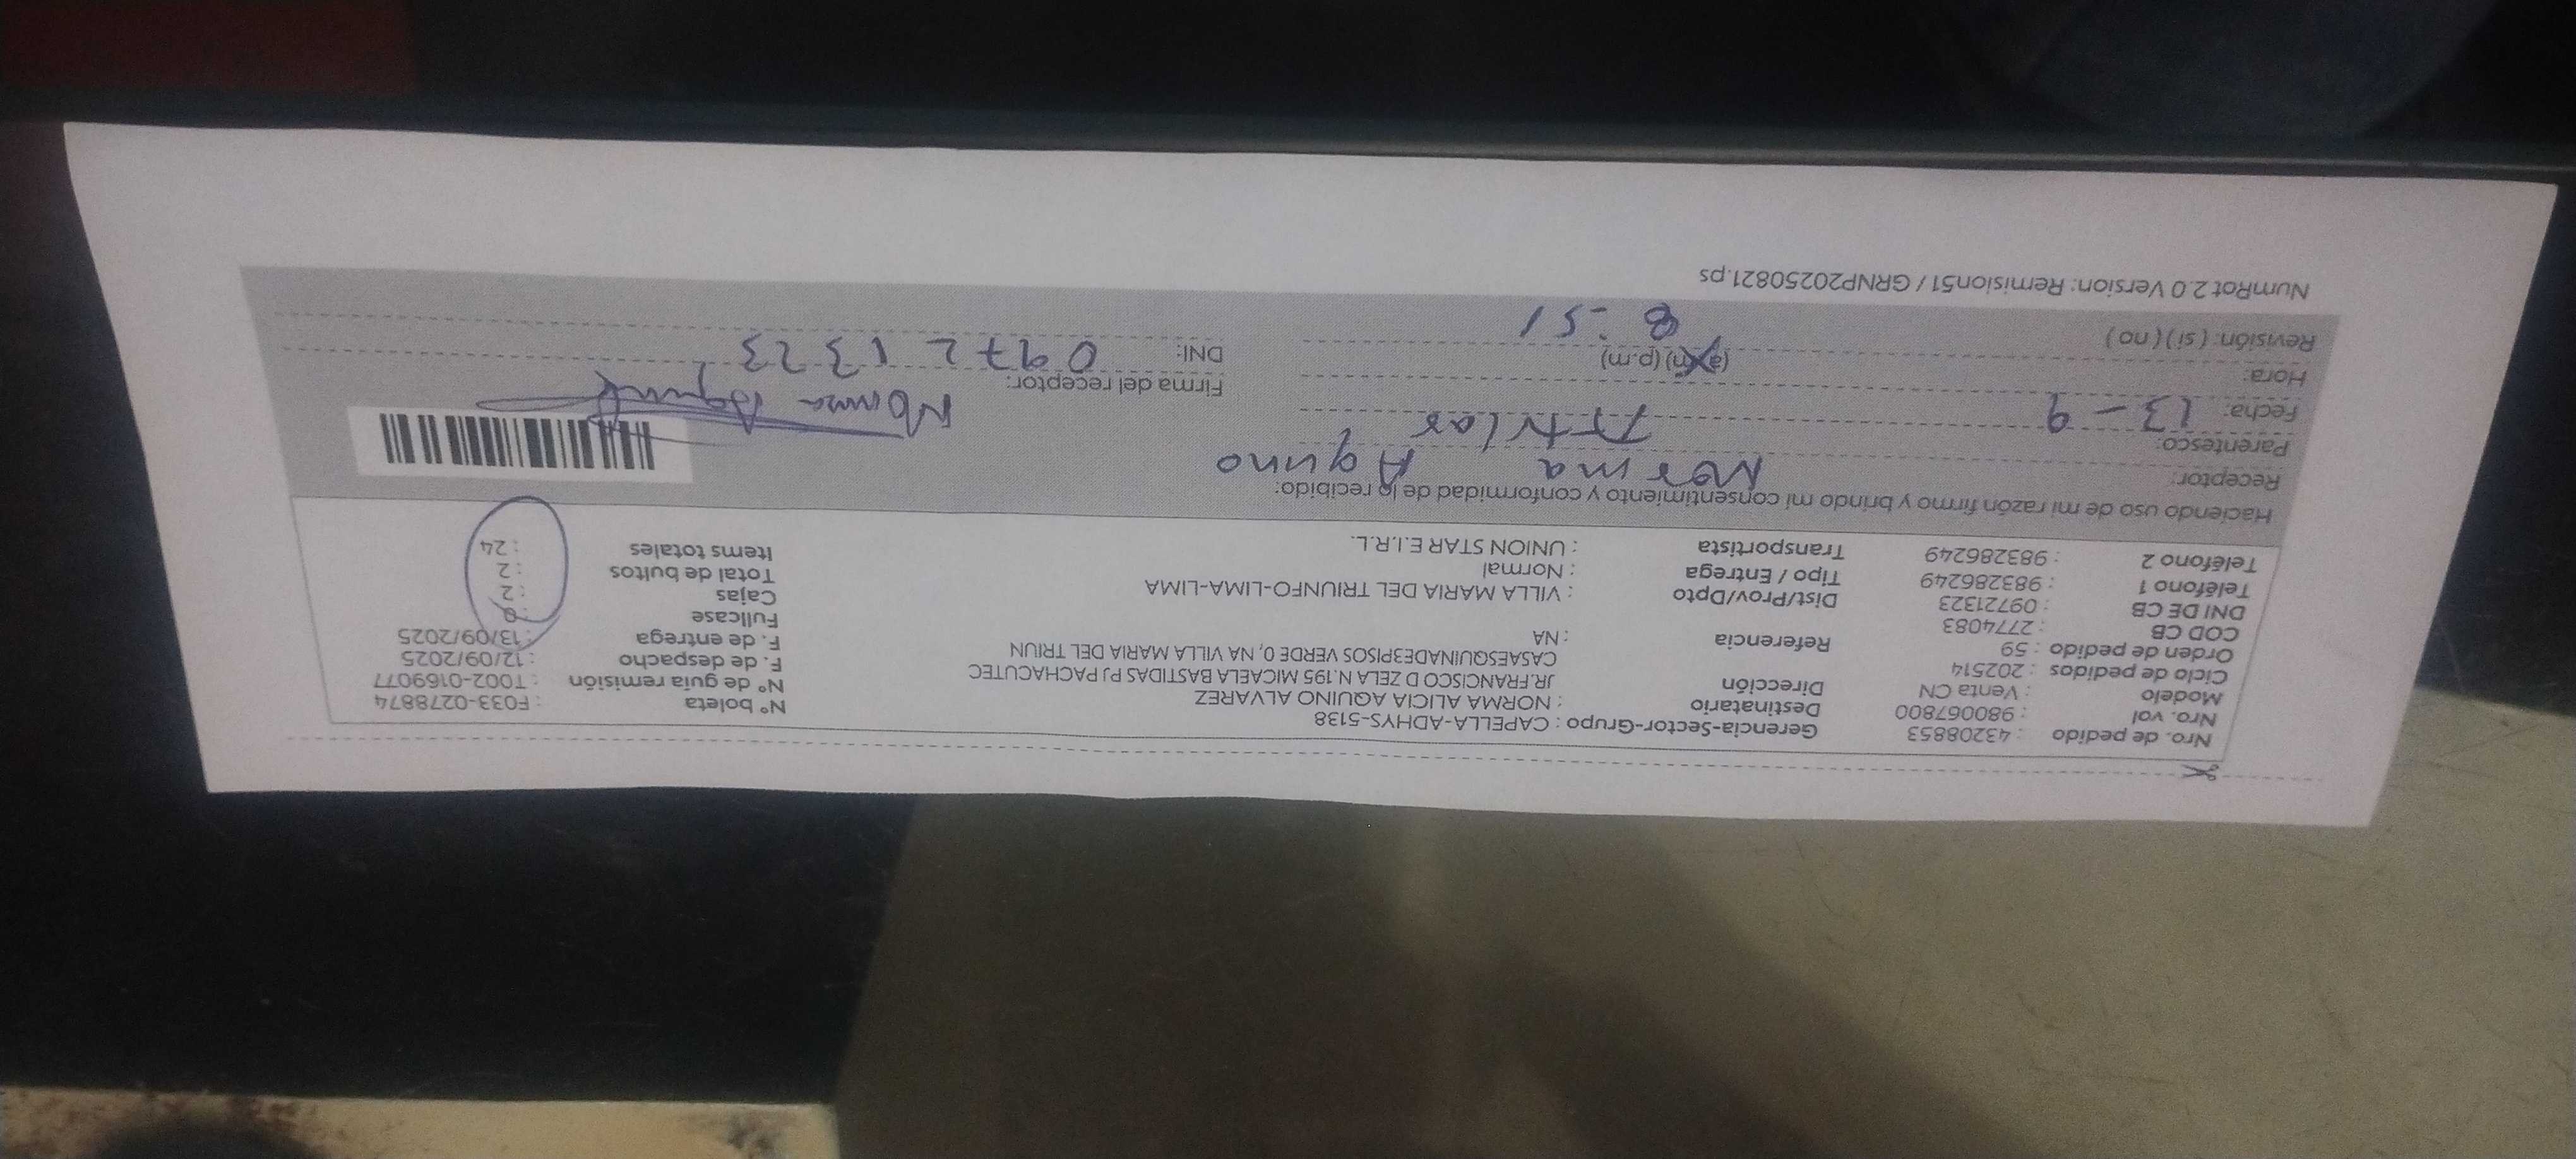 Nro. de pedido : 43208853 Gerencia-Sector-Grupo : CAPELLA-ADHYS-5138 N° boleta : F033-0278874
Nro. vol : 980067800 Destinatario : NORMA ALICIA AQUINO ALVAREZ N° de guia remisión : T002-0169077
Modelo : Venta CN Dirección JR.FRANCISCO D ZELA N.195 MICAELA BASTIDAS PJ PACHACUTEC F. de despacho : 12/09/2025
Ciclo de pedidos : 202514 CASAESQUINADE3PISOS VERDE 0, NA VILLA MARIA DEL TRIUN F. de entrega : 13/09/2025
Orden de pedido : 59 Referencia : NA Fullcase : 0
COD CB : 2774083 Dist/Prov/Dpto : VILLA MARIA DEL TRIUNFO-LIMA-LIMA Cajas : 2
DNI DE CB : 09721323 Tipo / Entrega : Normal Total de bultos : 2
Teléfono 1 : 983286249 Transportista : UNION STAR E.I.R.L. Items totales : 24
Teléfono 2 : 983286249
Haciendo uso de mi razón firmo y brindo mi consentimiento y conformidad de lo recibido:
Receptor: Norma Aquino
Parentesco: Titular
Fecha: 13-9 Firma del receptor: Norma Aquino
Hora: (a.m) (p.m) 8:51 DNI: 09721323
Revisión: ( si ) ( no )
NumRot 2.0 Version: Remision51 / GRNP20250821.ps